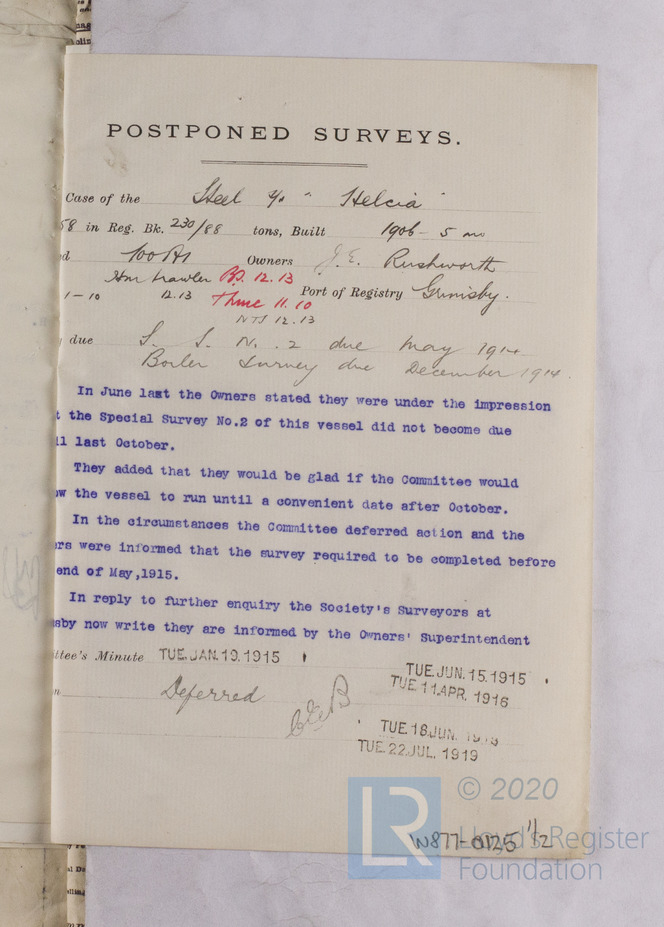 POSTPONED SURVEYS.
Case of the Steel "Helcia"
58 in Reg. Bk. 230/88 tons, Built 1906 - 5 mo
100A1 Owners J. E. Rushworth
Stm trawler BS. 12.13
1-10 12.13 11.10 Port of Registry Grimsby.
NTS 12.13
due S. S. No. 2 due May 1914
Boiler Survey due December 1914.
In June last the Owners stated they were under the impression
the Special Survey No.2 of this vessel did not become due
ll last October.
They added that they would be glad if the Committee would
ow the vessel to run until a convenient date after October.
In the circumstances the Committee deferred action and the
ers were informed that the survey required to be completed before
end of May,1915.
In reply to further enquiry the Society's Surveyors at
msby now write they are informed by the Owners' Superintendent
ittee's Minute TUE. JAN. 19. 1915
TUE. JUN. 15. 1915
TUE. 11. APR. 1916
Deferred
TUE. 18. JUN.
TUE. 22. JUL. 1919
© 2020
LR
Lloyd's Register
Foundation
W877-0125 1/2